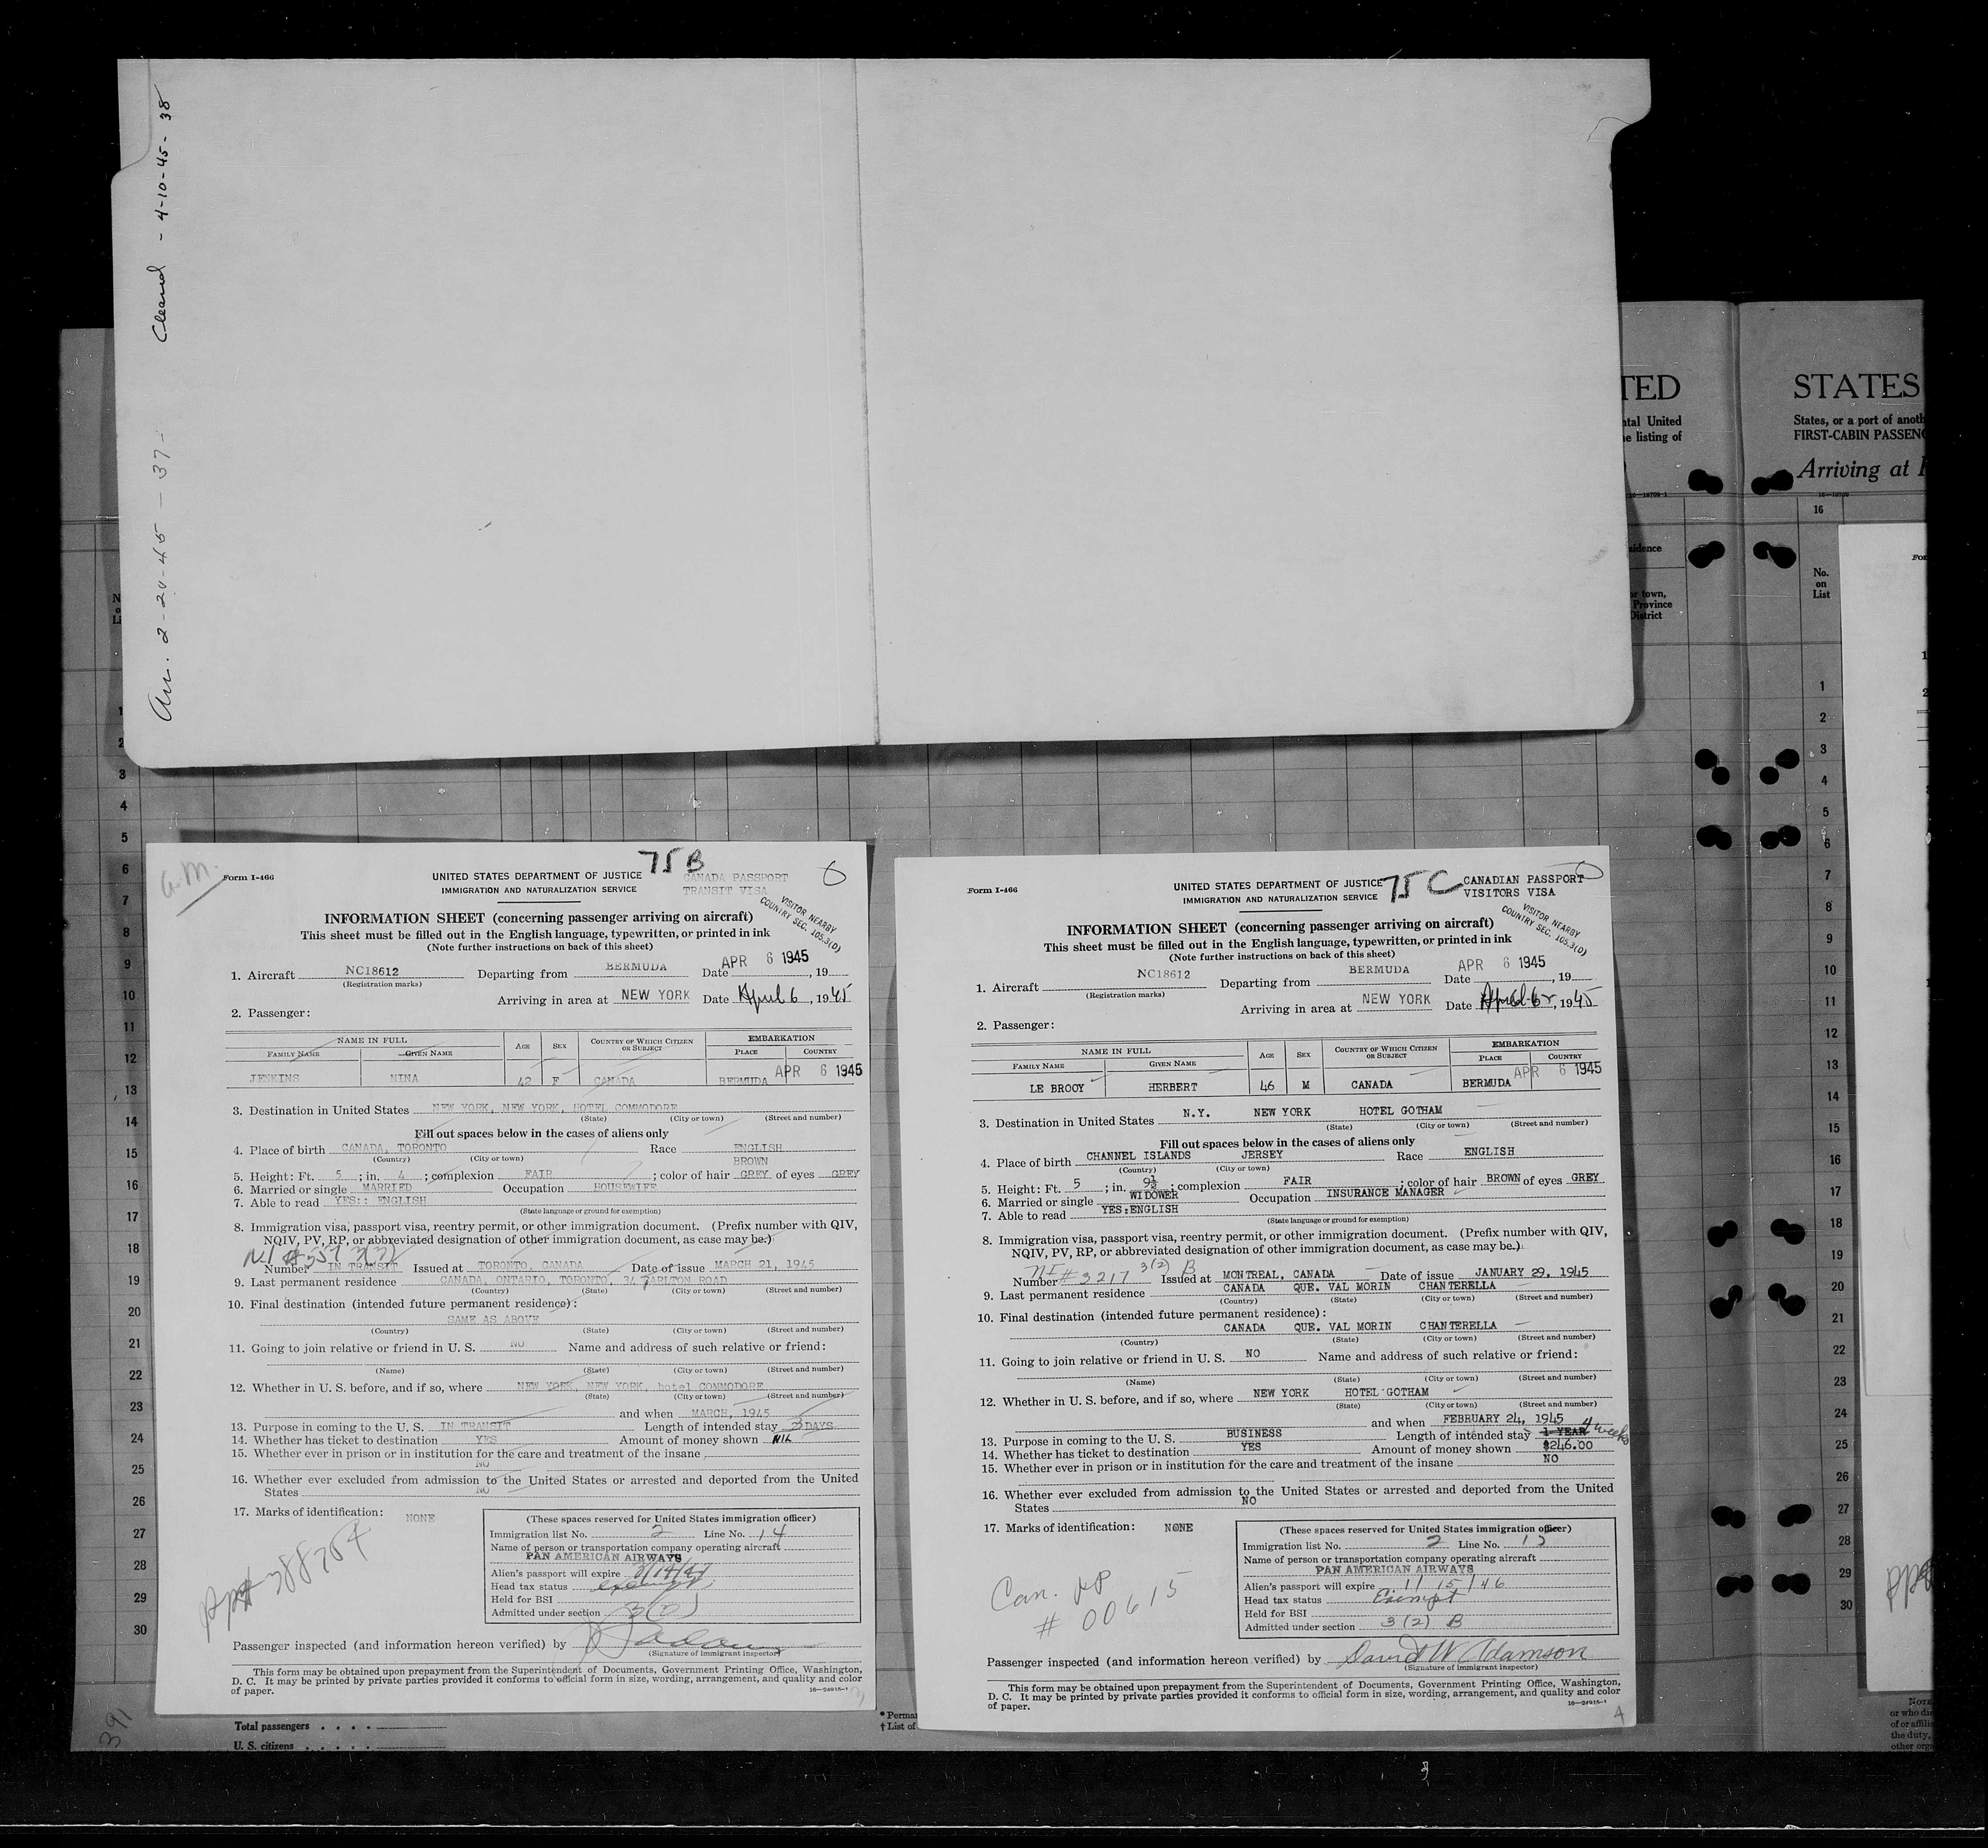 Cleared - 4-10-45-38
2-20-45-37-
TED
ntal United
e listing of
16—18709-1
sidence
or town,
Province
District
STATES
States, or a port of anoth
FIRST-CABIN PASSENG
Arriving at
16
No.
on
List
1
2
3
4
5
6
7
8
9
10
11
12
13
14
15
16
17
18
19
20
21
22
23
24
25
26
27
28
29
30
Form I-466
UNITED STATES DEPARTMENT OF JUSTICE
75B
IMMIGRATION AND NATURALIZATION SERVICE
CANADA PASSPORT
TRANSIT VISA
6
VISITOR NEARBY
COUNTRY SEC. 105.3(D)
INFORMATION SHEET (concerning passenger arriving on aircraft)
This sheet must be filled out in the English language, typewritten, or printed in ink
(Note further instructions on back of this sheet)
1. Aircraft NC18612 Departing from BERMUDA Date APR 6 1945, 19
(Registration marks)
Arriving in area at NEW YORK Date April 6, 1945
2. Passenger:
NAME IN FULL AGE SEX COUNTRY OF WHICH CITIZEN OR SUBJECT EMBARKATION
FAMILY NAME GIVEN NAME PLACE COUNTRY
JENKINS NINA 42 F CANADA BERMUDA APR 6 1945
3. Destination in United States NEW YORK, NEW YORK, HOTEL COMMODORE
(State) (City or town) (Street and number)
Fill out spaces below in the cases of aliens only
4. Place of birth CANADA, TORONTO Race ENGLISH
(Country) (City or town)
BROWN
5. Height: Ft. 5; in. 4; complexion FAIR; color of hair GREY of eyes GREY
6. Married or single MARRIED Occupation HOUSEWIFE
7. Able to read YES:: ENGLISH
(State language or ground for exemption)
8. Immigration visa, passport visa, reentry permit, or other immigration document. (Prefix number with QIV,
NQIV, PV, RP, or abbreviated designation of other immigration document, as case may be.)
Number IN TRANSIT Issued at TORONTO, CANADA Date of issue MARCH 21, 1945
9. Last permanent residence CANADA, ONTARIO, TORONTO, 34 TARLTON ROAD
(Country) (State) (City or town) (Street and number)
10. Final destination (intended future permanent residence):
SAME AS ABOVE
(Country) (State) (City or town) (Street and number)
11. Going to join relative or friend in U. S. NO Name and address of such relative or friend:
(Name) (State) (City or town) (Street and number)
12. Whether in U. S. before, and if so, where NEW YORK, NEW YORK, hotel COMMODORE
(State) (City or town) (Street and number)
and when MARCH, 1945
13. Purpose in coming to the U. S. IN TRANSIT Length of intended stay 3 DAYS
14. Whether has ticket to destination YES Amount of money shown NIL
15. Whether ever in prison or in institution for the care and treatment of the insane
NO
16. Whether ever excluded from admission to the United States or arrested and deported from the United
States NO
17. Marks of identification: NONE
(These spaces reserved for United States immigration officer)
Immigration list No. 2 Line No. 14
Name of person or transportation company operating aircraft
PAN AMERICAN AIRWAYS
Alien's passport will expire
Head tax status exempt
Held for BSI
Admitted under section
Passenger inspected (and information hereon verified) by
(Signature of immigrant inspector)
This form may be obtained upon prepayment from the Superintendent of Documents, Government Printing Office, Washington,
D. C. It may be printed by private parties provided it conforms to official form in size, wording, arrangement, and quality and color
of paper. 16—24915-1
Form I-466
UNITED STATES DEPARTMENT OF JUSTICE
75C
IMMIGRATION AND NATURALIZATION SERVICE
CANADIAN PASSPORT
VISITORS VISA
VISITOR NEARBY
COUNTRY SEC. 105.3(D)
INFORMATION SHEET (concerning passenger arriving on aircraft)
This sheet must be filled out in the English language, typewritten, or printed in ink
(Note further instructions on back of this sheet)
1. Aircraft NC18612 Departing from BERMUDA Date APR 6 1945, 19
(Registration marks)
Arriving in area at NEW YORK Date April 6, 1945
2. Passenger:
NAME IN FULL AGE SEX COUNTRY OF WHICH CITIZEN OR SUBJECT EMBARKATION
FAMILY NAME GIVEN NAME PLACE COUNTRY
LE BROOY HERBERT 46 M CANADA BERMUDA APR 6 1945
3. Destination in United States N.Y. NEW YORK HOTEL GOTHAM
(State) (City or town) (Street and number)
Fill out spaces below in the cases of aliens only
4. Place of birth CHANNEL ISLANDS JERSEY Race ENGLISH
(Country) (City or town)
5. Height: Ft. 5; in. 9½; complexion FAIR; color of hair BROWN of eyes GREY
6. Married or single WIDOWER Occupation INSURANCE MANAGER
7. Able to read YES:ENGLISH
(State language or ground for exemption)
8. Immigration visa, passport visa, reentry permit, or other immigration document. (Prefix number with QIV,
NQIV, PV, RP, or abbreviated designation of other immigration document, as case may be.)
NI 3(2) B
Number #3217 Issued at MONTREAL, CANADA Date of issue JANUARY 29, 1945
9. Last permanent residence CANADA QUE. VAL MORIN CHANTERELLA
(Country) (State) (City or town) (Street and number)
10. Final destination (intended future permanent residence):
CANADA QUE. VAL MORIN CHANTERELLA
(Country) (State) (City or town) (Street and number)
11. Going to join relative or friend in U. S. NO Name and address of such relative or friend:
(Name) (State) (City or town) (Street and number)
12. Whether in U. S. before, and if so, where NEW YORK HOTEL GOTHAM
(State) (City or town) (Street and number)
and when FEBRUARY 24, 1945
13. Purpose in coming to the U. S. BUSINESS Length of intended stay 1 YEAR 4 weeks
14. Whether has ticket to destination YES Amount of money shown $246.00
15. Whether ever in prison or in institution for the care and treatment of the insane NO
16. Whether ever excluded from admission to the United States or arrested and deported from the United
States NO
17. Marks of identification: NONE
(These spaces reserved for United States immigration officer)
Immigration list No. 2 Line No.
Name of person or transportation company operating aircraft
PAN AMERICAN AIRWAYS
Alien's passport will expire 11/15/46
Head tax status Exempt
Held for BSI
Admitted under section 3(2) B
Can. PP
# 00615
Passenger inspected (and information hereon verified) by David W Adamson
(Signature of immigrant inspector)
This form may be obtained upon prepayment from the Superintendent of Documents, Government Printing Office, Washington,
D. C. It may be printed by private parties provided it conforms to official form in size, wording, arrangement, and quality and color
of paper. 16—24915-1
391
Total passengers . . . .
U. S. citizens . . . . .
* Perma
† List of
NOTE
or who die
of or affilia
the duty,
other orga